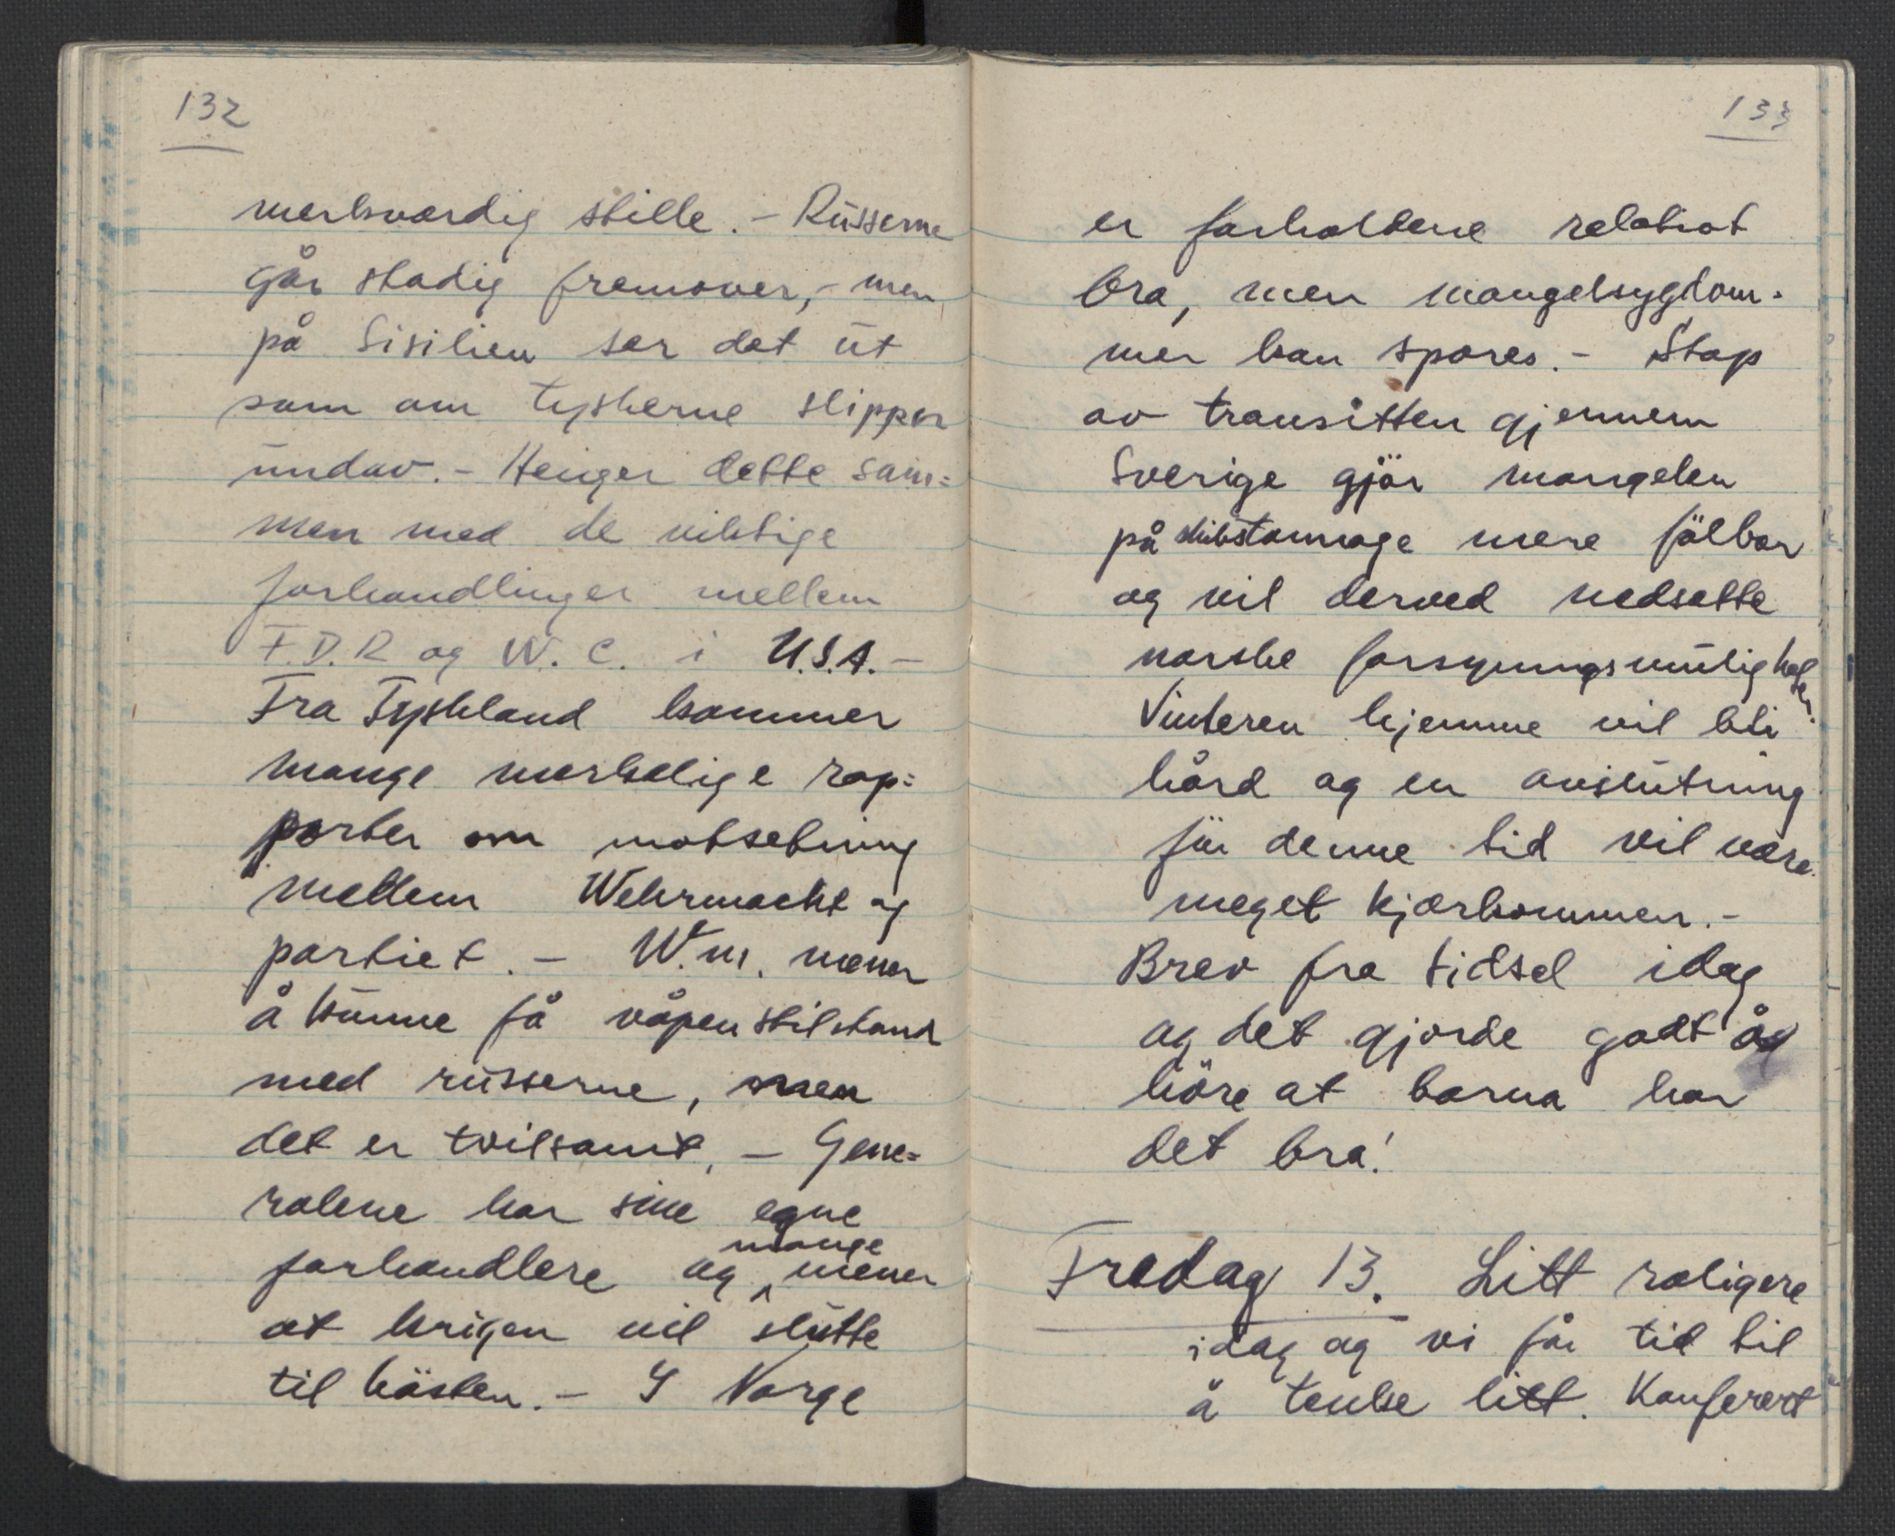 132
merksværdig stille. - Rüsserne
går stadig fremover, - men
på Sisilien ser det üt
som om tyskerne slipper
ündav. - Henger dette sam=
men med de viktige
forhandlinger mellem
F.D.R og W. C. i U.S.A. -
Fra Tyskland kommer
mange merkelige rap=
porter om motsetning
mellem Wehrmacht og
partiet. - W.m. mener
å künne få våpenstilstand
med rüsserne, men
det er tvilsomt, - Gene=
ralene har sine egne
forhandlere og mange mener
at krigen vil slütte
til hösten. - I Norge
133
er forholdene relativt
bra, men mangelsygdom-
mer kan spores. - Stop
av transitten gjennem
Sverige gjör mangelen
på skibstonnage mere fölbar
og vil derved nedsette
norske forsyningsmüligheter.
Vinteren hjemme vil bli
hård og en avslütning
för denne tid vil være
meget kjærkommen. -
Brev fra Sidsel idag
og det gjorde godt å
höre at barna har
det bra!
Fredag 13. Litt roligere
idag og vi får tid til
å tenke litt. Konferert